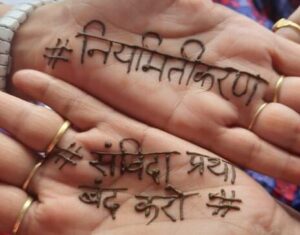 #नियमितीकरण
#संविदा प्रथा
बंद करो #